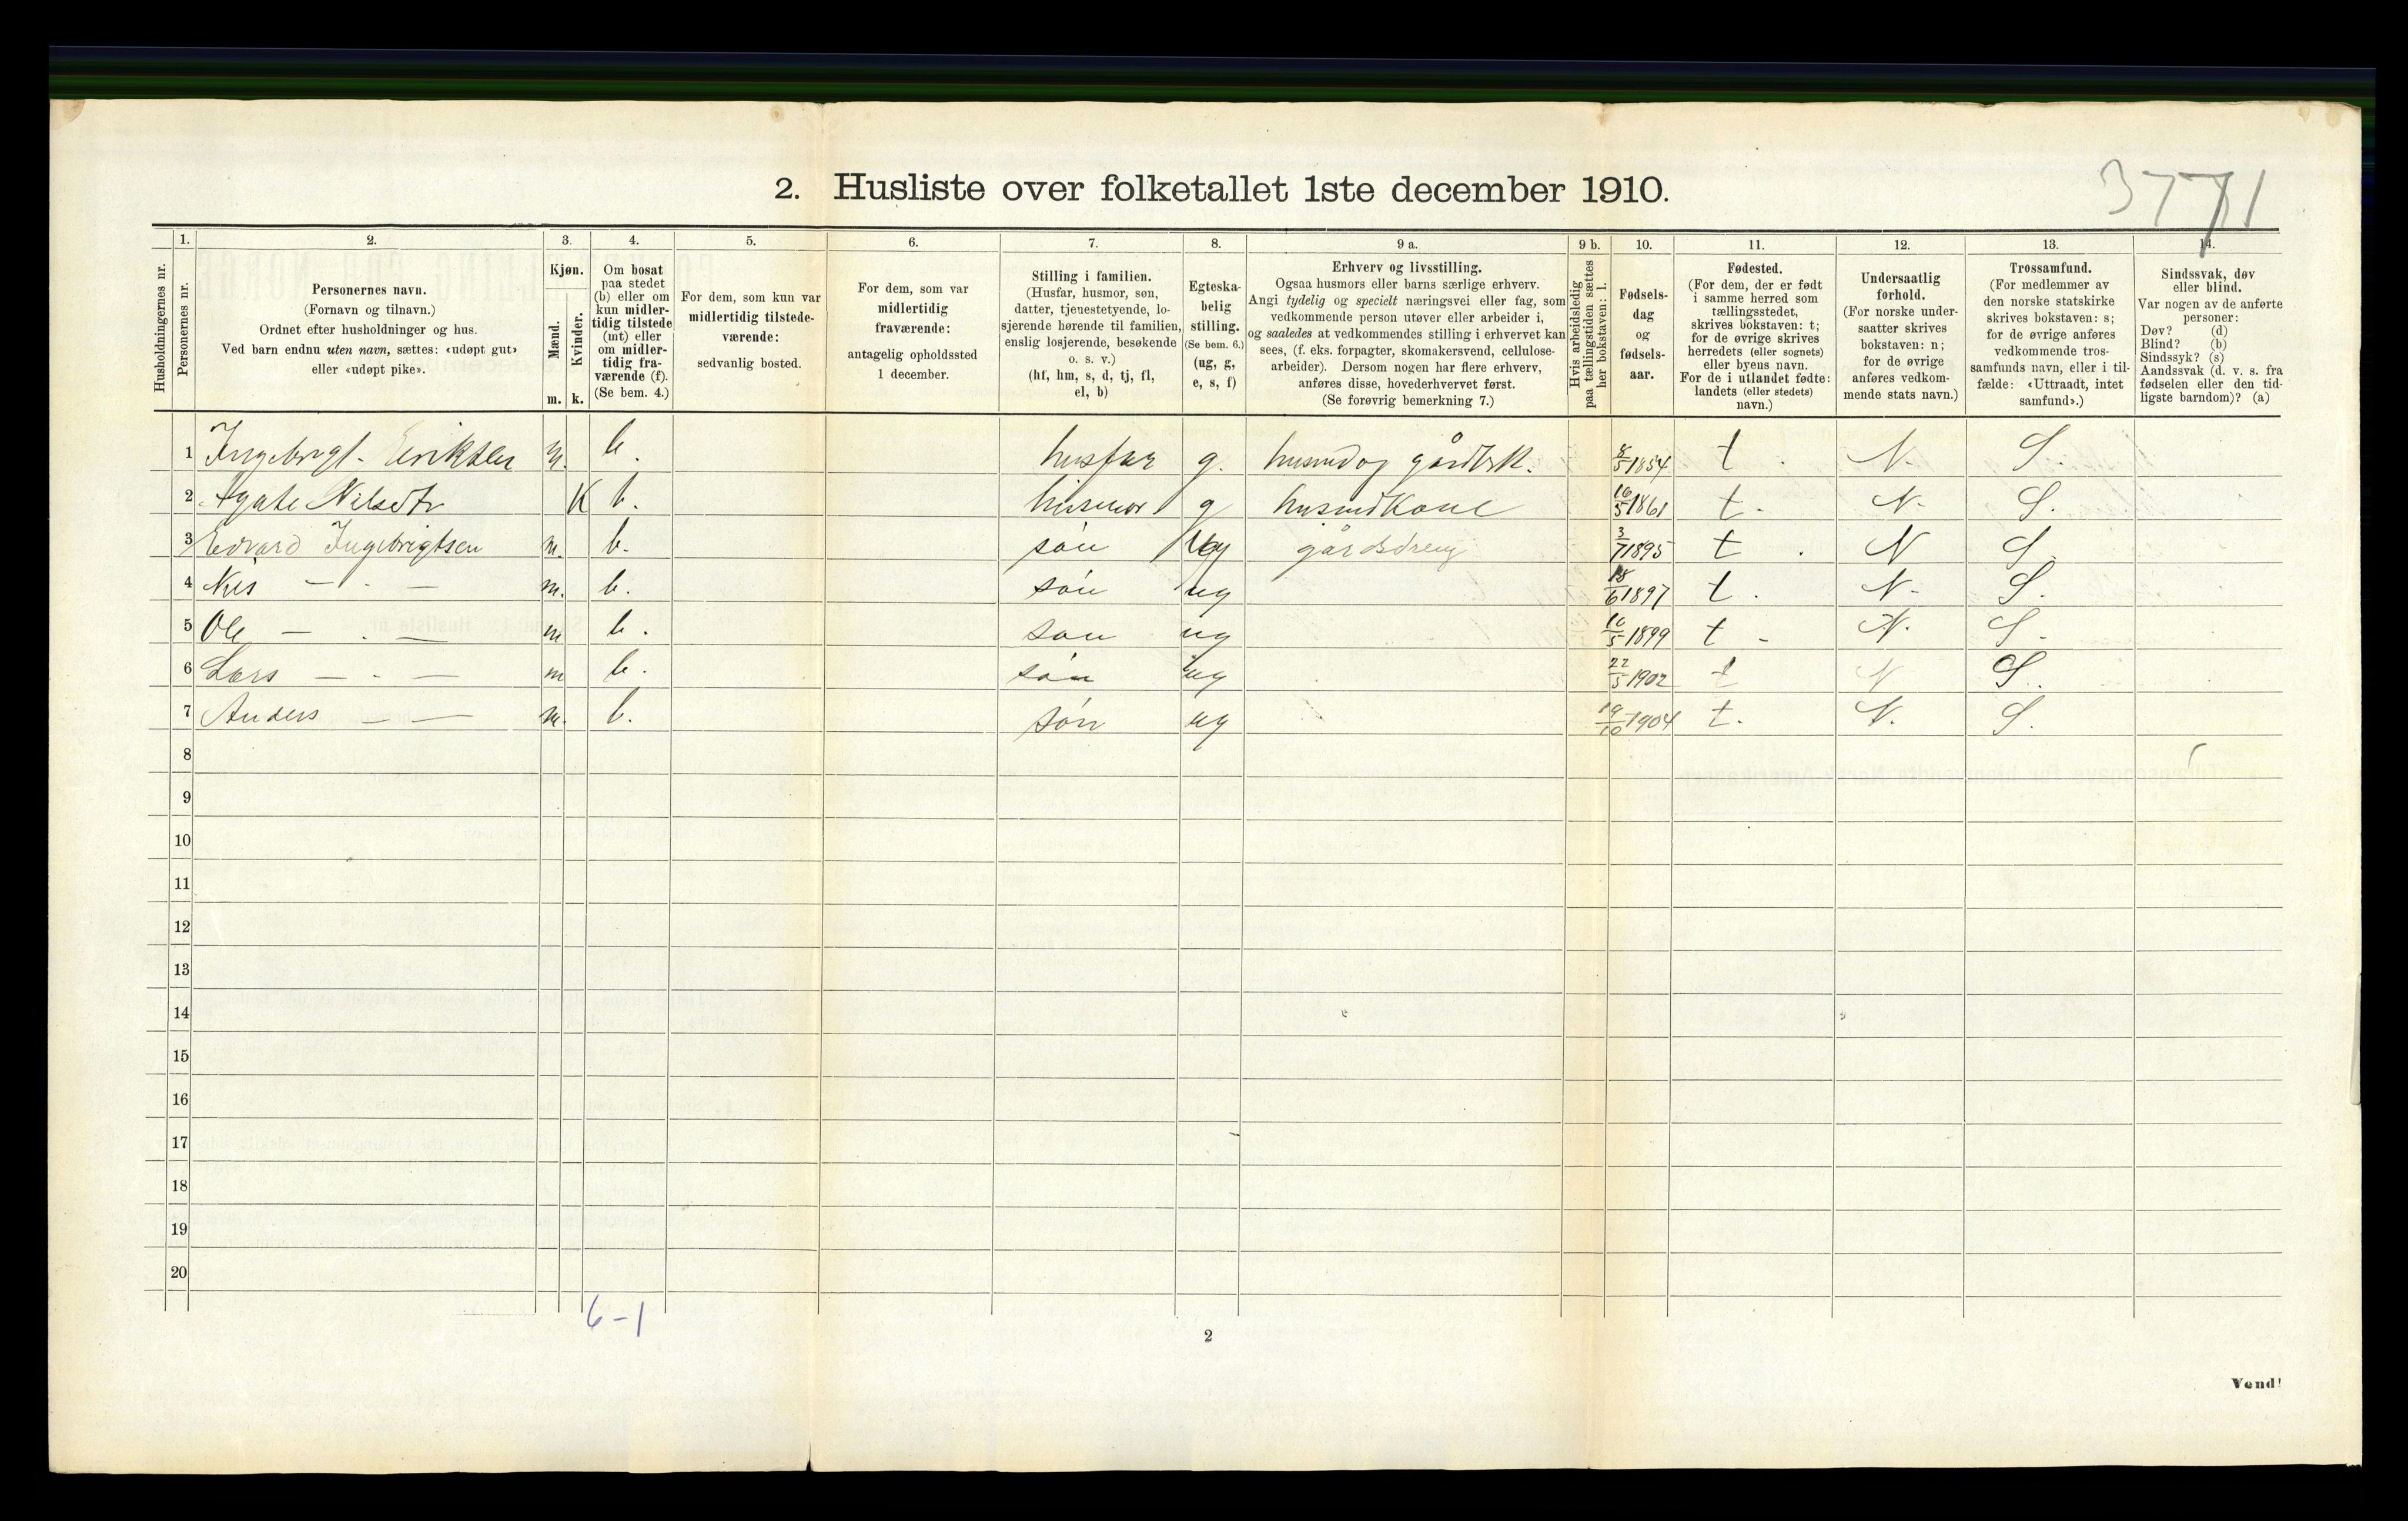 3771
2. Husliste over folketallet 1ste december 1910.
Husholdningernes nr.
1. Personernes nr.
2. Personernes navn.
(Fornavn og tilnavn.)
Ordnet efter husholdninger og hus.
Ved barn endnu uten navn, sættes: «udøpt gut»
eller «udøpt pike».
3. Kjøn.
Mænd. m.
Kvinder. k.
4. Om bosat
paa stedet
(b) eller om
kun midler-
tidig tilstede
(mt) eller
om midler-
tidig fra-
værende (f).
(Se bem. 4.)
5. For dem, som kun var
midlertidig tilstede-
værende:
sedvanlig bosted.
6. For dem, som var
midlertidig
fraværende:
antagelig opholdssted
1 december.
7. Stilling i familien.
(Husfar, husmor, søn,
datter, tjenestetyende, lo-
sjerende hørende til familien,
enslig losjerende, besøkende
o. s. v.)
(hf, hm, s, d, tj, fl,
el, b)
8. Egteska-
belig
stilling.
(Se bem. 6.)
(ug, g,
e, s, f)
9 a. Erhverv og livsstilling.
Ogsaa husmors eller barns særlige erhverv.
Angi tydelig og specielt næringsvei eller fag, som
vedkommende person utøver eller arbeider i,
og saaledes at vedkommendes stilling i erhvervet kan
sees, (f. eks. forpagter, skomakersvend, cellulose-
arbeider). Dersom nogen har flere erhverv,
anføres disse, hovederhvervet først.
(Se forøvrig bemerkning 7.)
9 b. Hvis arbeidsledig
paa tællingstiden sættes
her bokstaven: l.
10. Fødsels-
dag
og
fødsels-
aar.
11. Fødested.
(For dem, der er født
i samme herred som
tællingsstedet,
skrives bokstaven: t;
for de øvrige skrives
herredets (eller sognets)
eller byens navn.
For de i utlandet fødte:
landets (eller stedets)
navn.)
12. Undersaatlig
forhold.
(For norske under-
saatter skrives
bokstaven: n;
for de øvrige
anføres vedkom-
mende stats navn.)
13. Trossamfund.
(For medlemmer av
den norske statskirke
skrives bokstaven: s;
for de øvrige anføres
vedkommende tros-
samfunds navn, eller i til-
fælde: «Uttraadt, intet
samfund».)
14. Sindssvak, døv
eller blind.
Var nogen av de anførte
personer:
Døv? (d)
Blind? (b)
Sindssyk? (s)
Aandssvak (d. v. s. fra
fødselen eller den tid-
ligste barndom)? (a)
1 Ingebrigt Eriksen m. b. husfar g. 8/5 1854 t. N. S.
2 Agate Nilsdtr K b. husmor g husmdKone 16/5 1861 t. N. S.
3 Edvard Ingebrigtsen m. b. søn ug gårdsdreng 3/7 1895 t. N S
4 Nils — - — m. b. søn ug 18/6 1897 t. N. S.
5 Ole — . — m b. søn ug 16/5 1899 t - N. S.
6 Lars — - — m b. søn ug 22/5 1902 t N S.
7 Anders — — m. b. søn ug 19/10 1904 t. N. S.
8
9
10
11
12
13
14
15
16
17
18
19
20
6-1
2
Vend!